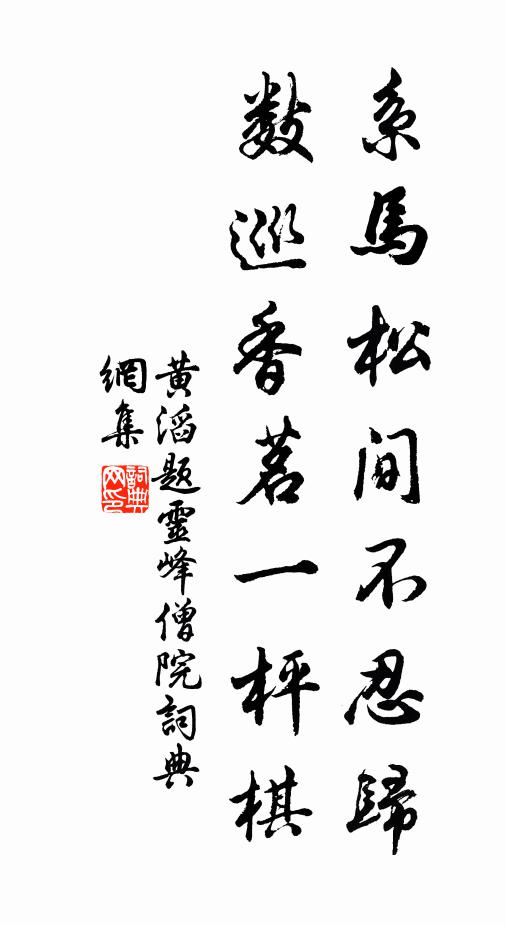 系馬松間不忍歸
數巡香茗一枰棋
黄滔题靈峰僧院詞典
網集
詞典网印